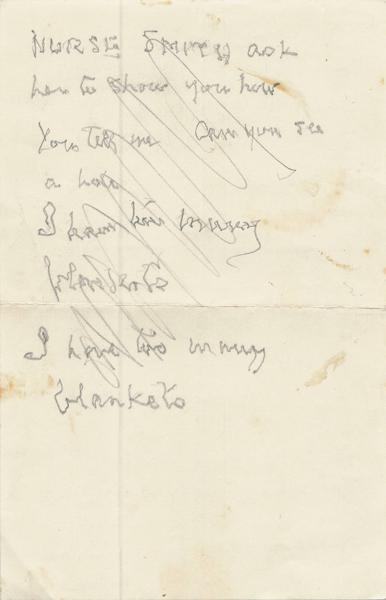 NURSE Smithy ask
her to show you how
You tell me Can you see
a hole
I have too many
blankets
I have too many
blankets